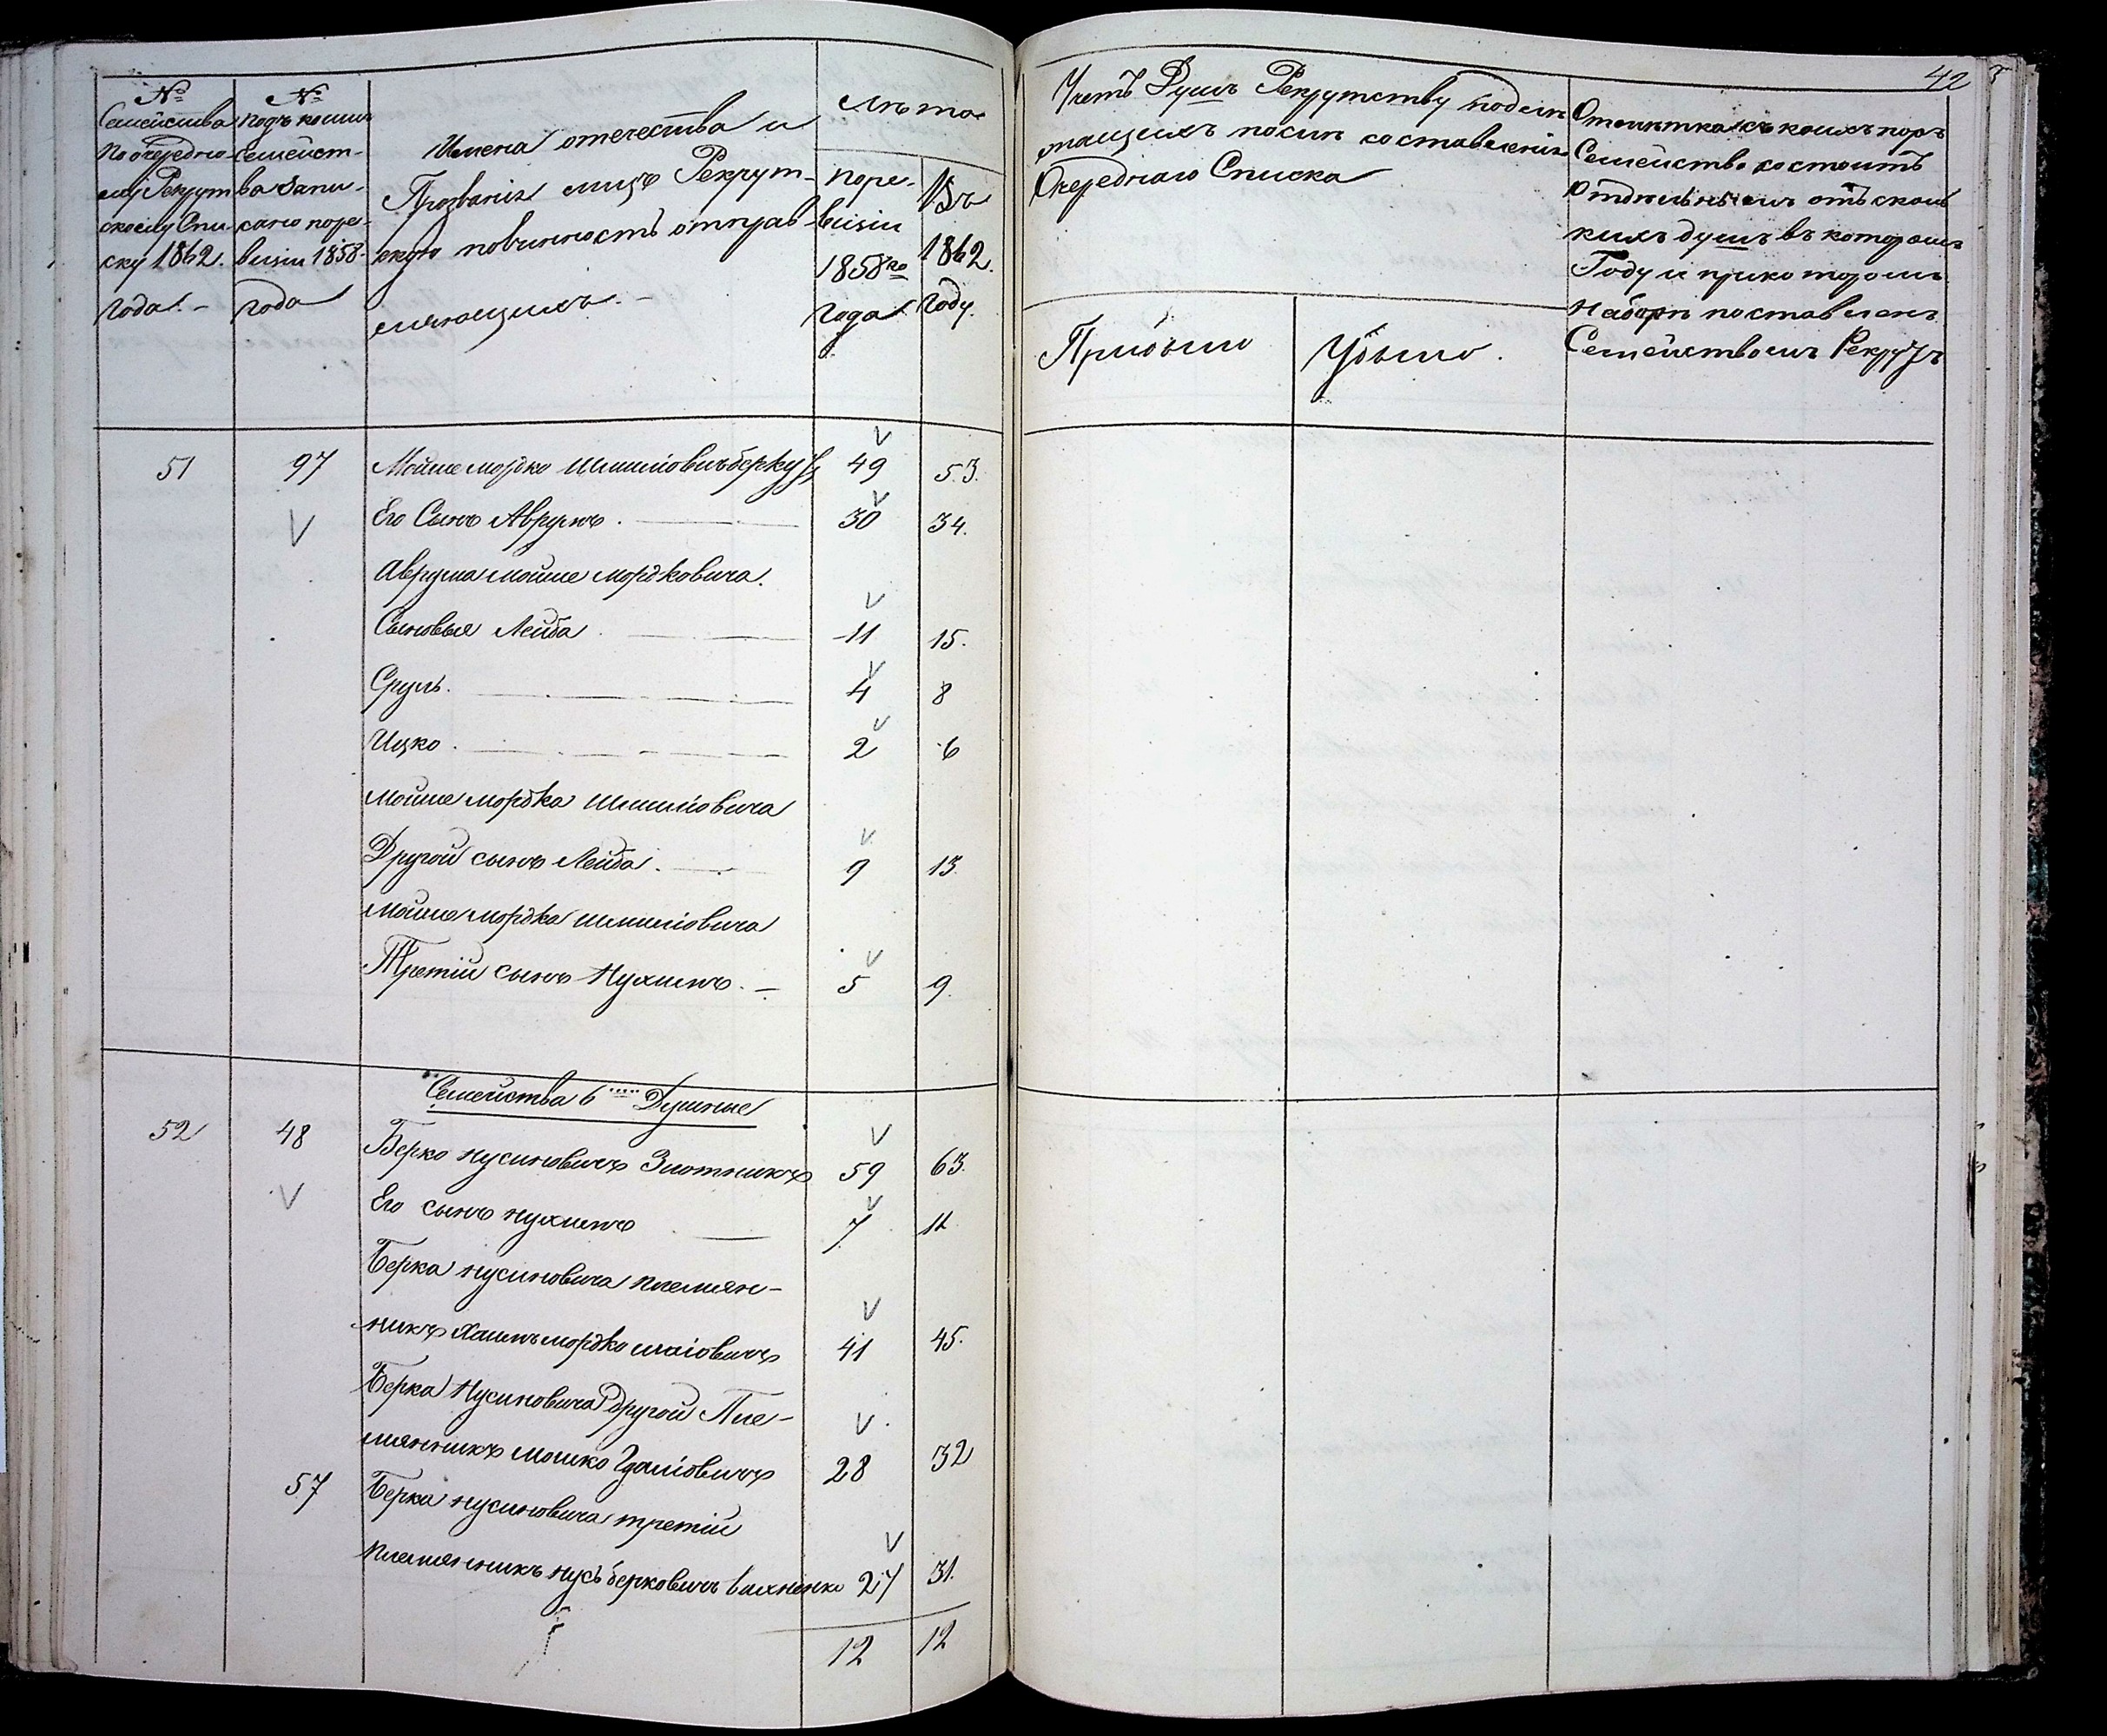 №
Семейства
по очередно-
му Рекрут
скому Спи-
ску 1862.
Года. —
№
подъ коимъ
Семейст-
во запи-
сано поре-
визіи 1858
года
Имена отечества и
Прозванія лицъ Рекрут-
скую повинность отправ-
ляющихъ. —
Лѣта
поре-
визіи
1858го
года
Въ
1862.
Году.
42
Учетъ Душъ Рекрутству подле
жащихъ послѣ составленія
Очереднаго Списка
Прибыло
Убыло.
Отмѣтка съ коихъ поръ
Семейство состоитъ
Отдѣльнымъ отъ сколь
кихъ душъ въ которомъ
Году и прико торомъ
Наборѣ поставленъ
Семействомъ Рекрутъ
51 97 Мойше мордко Шмилиовичъ 49 53.
Его Сынъ Аврумъ. 30 34.
Аврума мойше мордковича.
Сыновья Лейба 11 15.
Сруль. 4 8
Ицко. 2 6
мойше мордка Шмилиовича
Другой сынъ Лейба. 9 13.
мойше мордка шмилиовича
Третій сынъ Нухимъ. — 5 9.
Семейства 6 Душные
52 48 Берко нусиновичъ Злотникъ 59 63.
Его сынъ нухимъ 7 11
Берка нусиновича племян-
никъ Хаимъ мордко 41 45.
Берка Нусиновича другой Пле-
мянникъ мошко 28 32
57 Берка нусиновича третій
племянникъ нусь берковичъ 27 31.
12 12